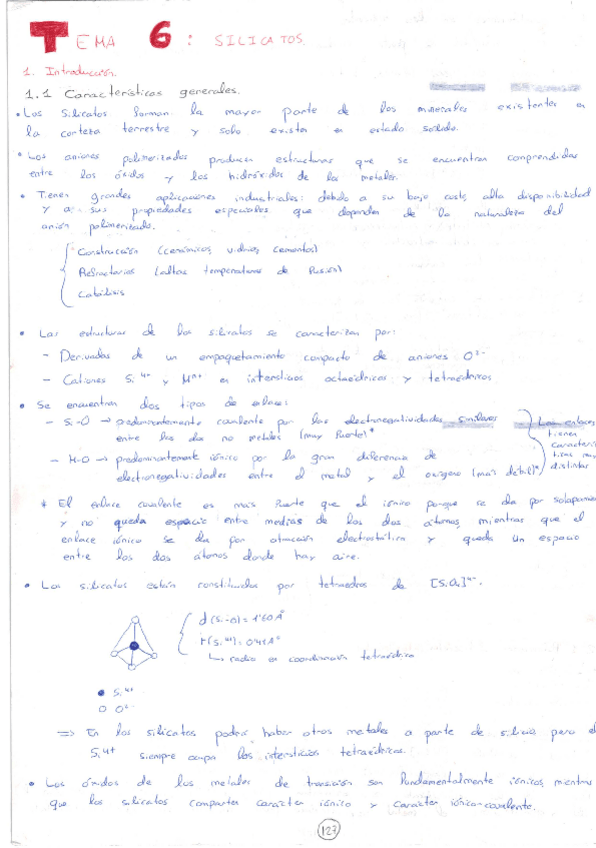 TEMA 6: SILICATOS
1. Introducción.
1.1 Características generales.
• Los silicatos forman la mayor parte de los minerales existentes en
la corteza terrestre y solo existen en estado sólido.
• Los aniones polimerizados producen estructuras que se encuentran comprendidas
entre los óxidos y los hidróxidos de los metales.
• Tienen grandes aplicaciones industriales: debido a su bajo coste, alta disponibilidad
y a sus propiedades especiales que dependen de la naturaleza del
anión polimerizado.
Construcción (cerámicos, vidrios, cementos)
Refractarios (altas temperaturas de fusión)
Catálisis
• Las estructuras de los silicatos se caracterizan por:
- Derivadas de un empaquetamiento compacto de aniones O²⁻
- Cationes Si⁴⁺ y Mⁿ⁺ en intersticios octaédricos y tetraédricos
• Se encuentran dos tipos de enlace:
- Si-O → predominantemente covalente por las electronegatividades similares
entre los dos no metales (muy fuerte)*
- M-O → predominantemente iónico por la gran diferencia de
electronegatividades entre el metal y el oxígeno (más débil)*
Los enlaces
tienen
caracterís
ticas muy
distintas
* El enlace covalente es más fuerte que el iónico porque se da por solapamie
y no queda espacio entre medias de los dos átomos, mientras que el
enlace iónico se da por atracción electrostática y queda un espacio
entre los dos átomos donde hay aire.
• Los silicatos están constituidos por tetraedros de [SiO₄]⁴⁻.
d(Si-O) = 1'60 Å
r(Si⁴⁺) = 0'41 Å
↳ radio en coordinación tetraédrica
Si⁴⁺
O²⁻
⇒ En los silicatos podrá haber otros metales a parte de silicio pero el
Si⁴⁺ siempre ocupa los intersticios tetraédricos.
• Los óxidos de los metales de transición son fundamentalmente iónicos, mientras
que los silicatos comparten carácter iónico y carácter iónico-covalente.
127